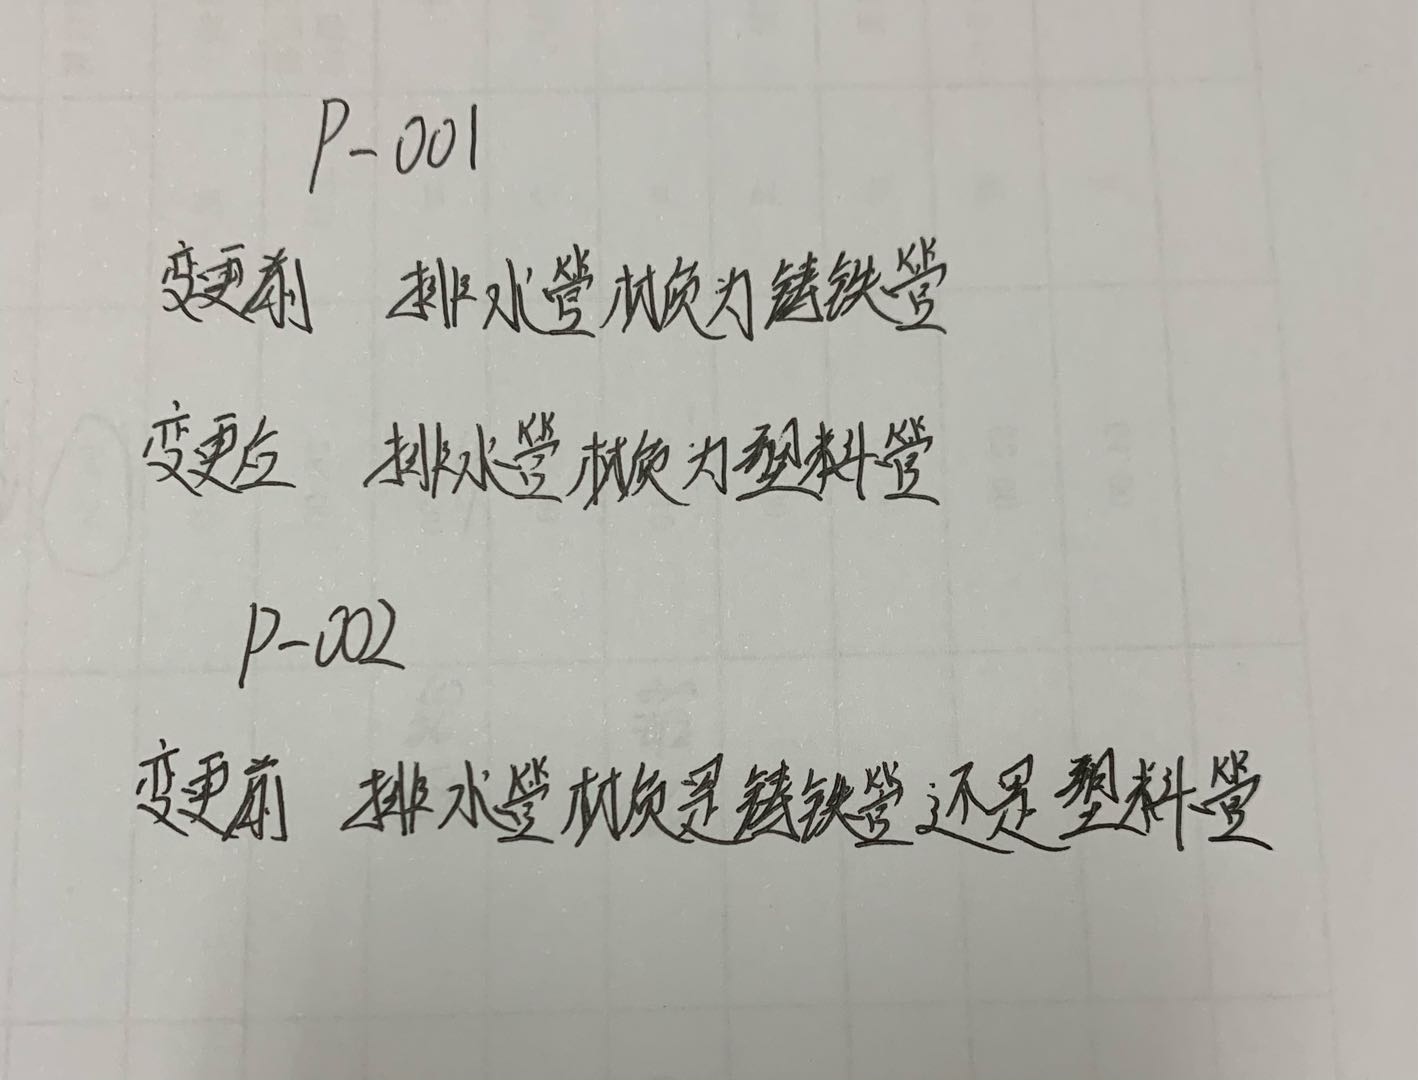 P-001
变更前 排水管材质为铸铁管
变更后 排水管材质为塑料管
P-002
变更前 排水管材质是铸铁管还是塑料管